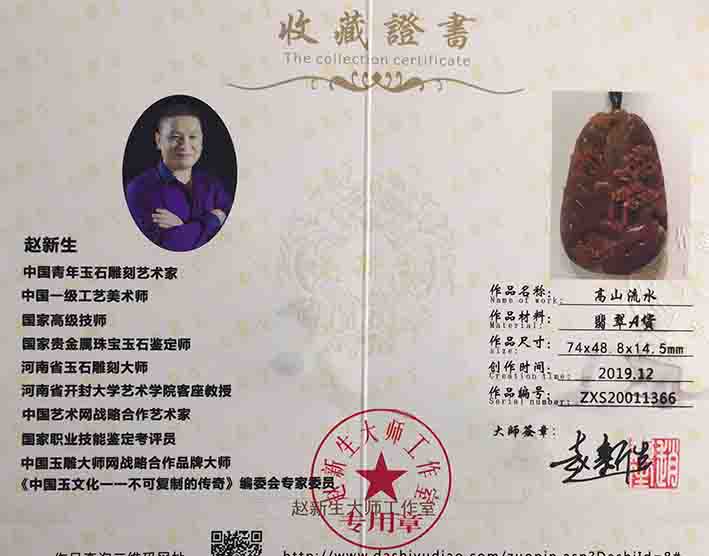 收藏證書
The collection certificate
赵新生
中国青年玉石雕刻艺术家
中国一级工艺美术师
国家高级技师
国家贵金属珠宝玉石鉴定师
河南省玉石雕刻大师
河南省开封大学艺术学院客座教授
中国艺术网战略合作艺术家
国家职业技能鉴定考评员
中国玉雕大师网战略合作品牌大师
《中国玉文化一一不可复制的传奇》编委会专家委员
作品名称: 高山流水
Name of work:
作品材料: 翡翠A货
Material:
作品尺寸: 74x48.8x14.5mm
size:
创作时间: 2019.12
Creation time:
作品编号: ZXS20011366
Serial number:
大师签章: 赵新生
赵新生大师工作室
专用章
赵新生大师工作室
作品查询二维码网址
http://www.dashiyudiao.com/zuopin.asp?DashiId=8#